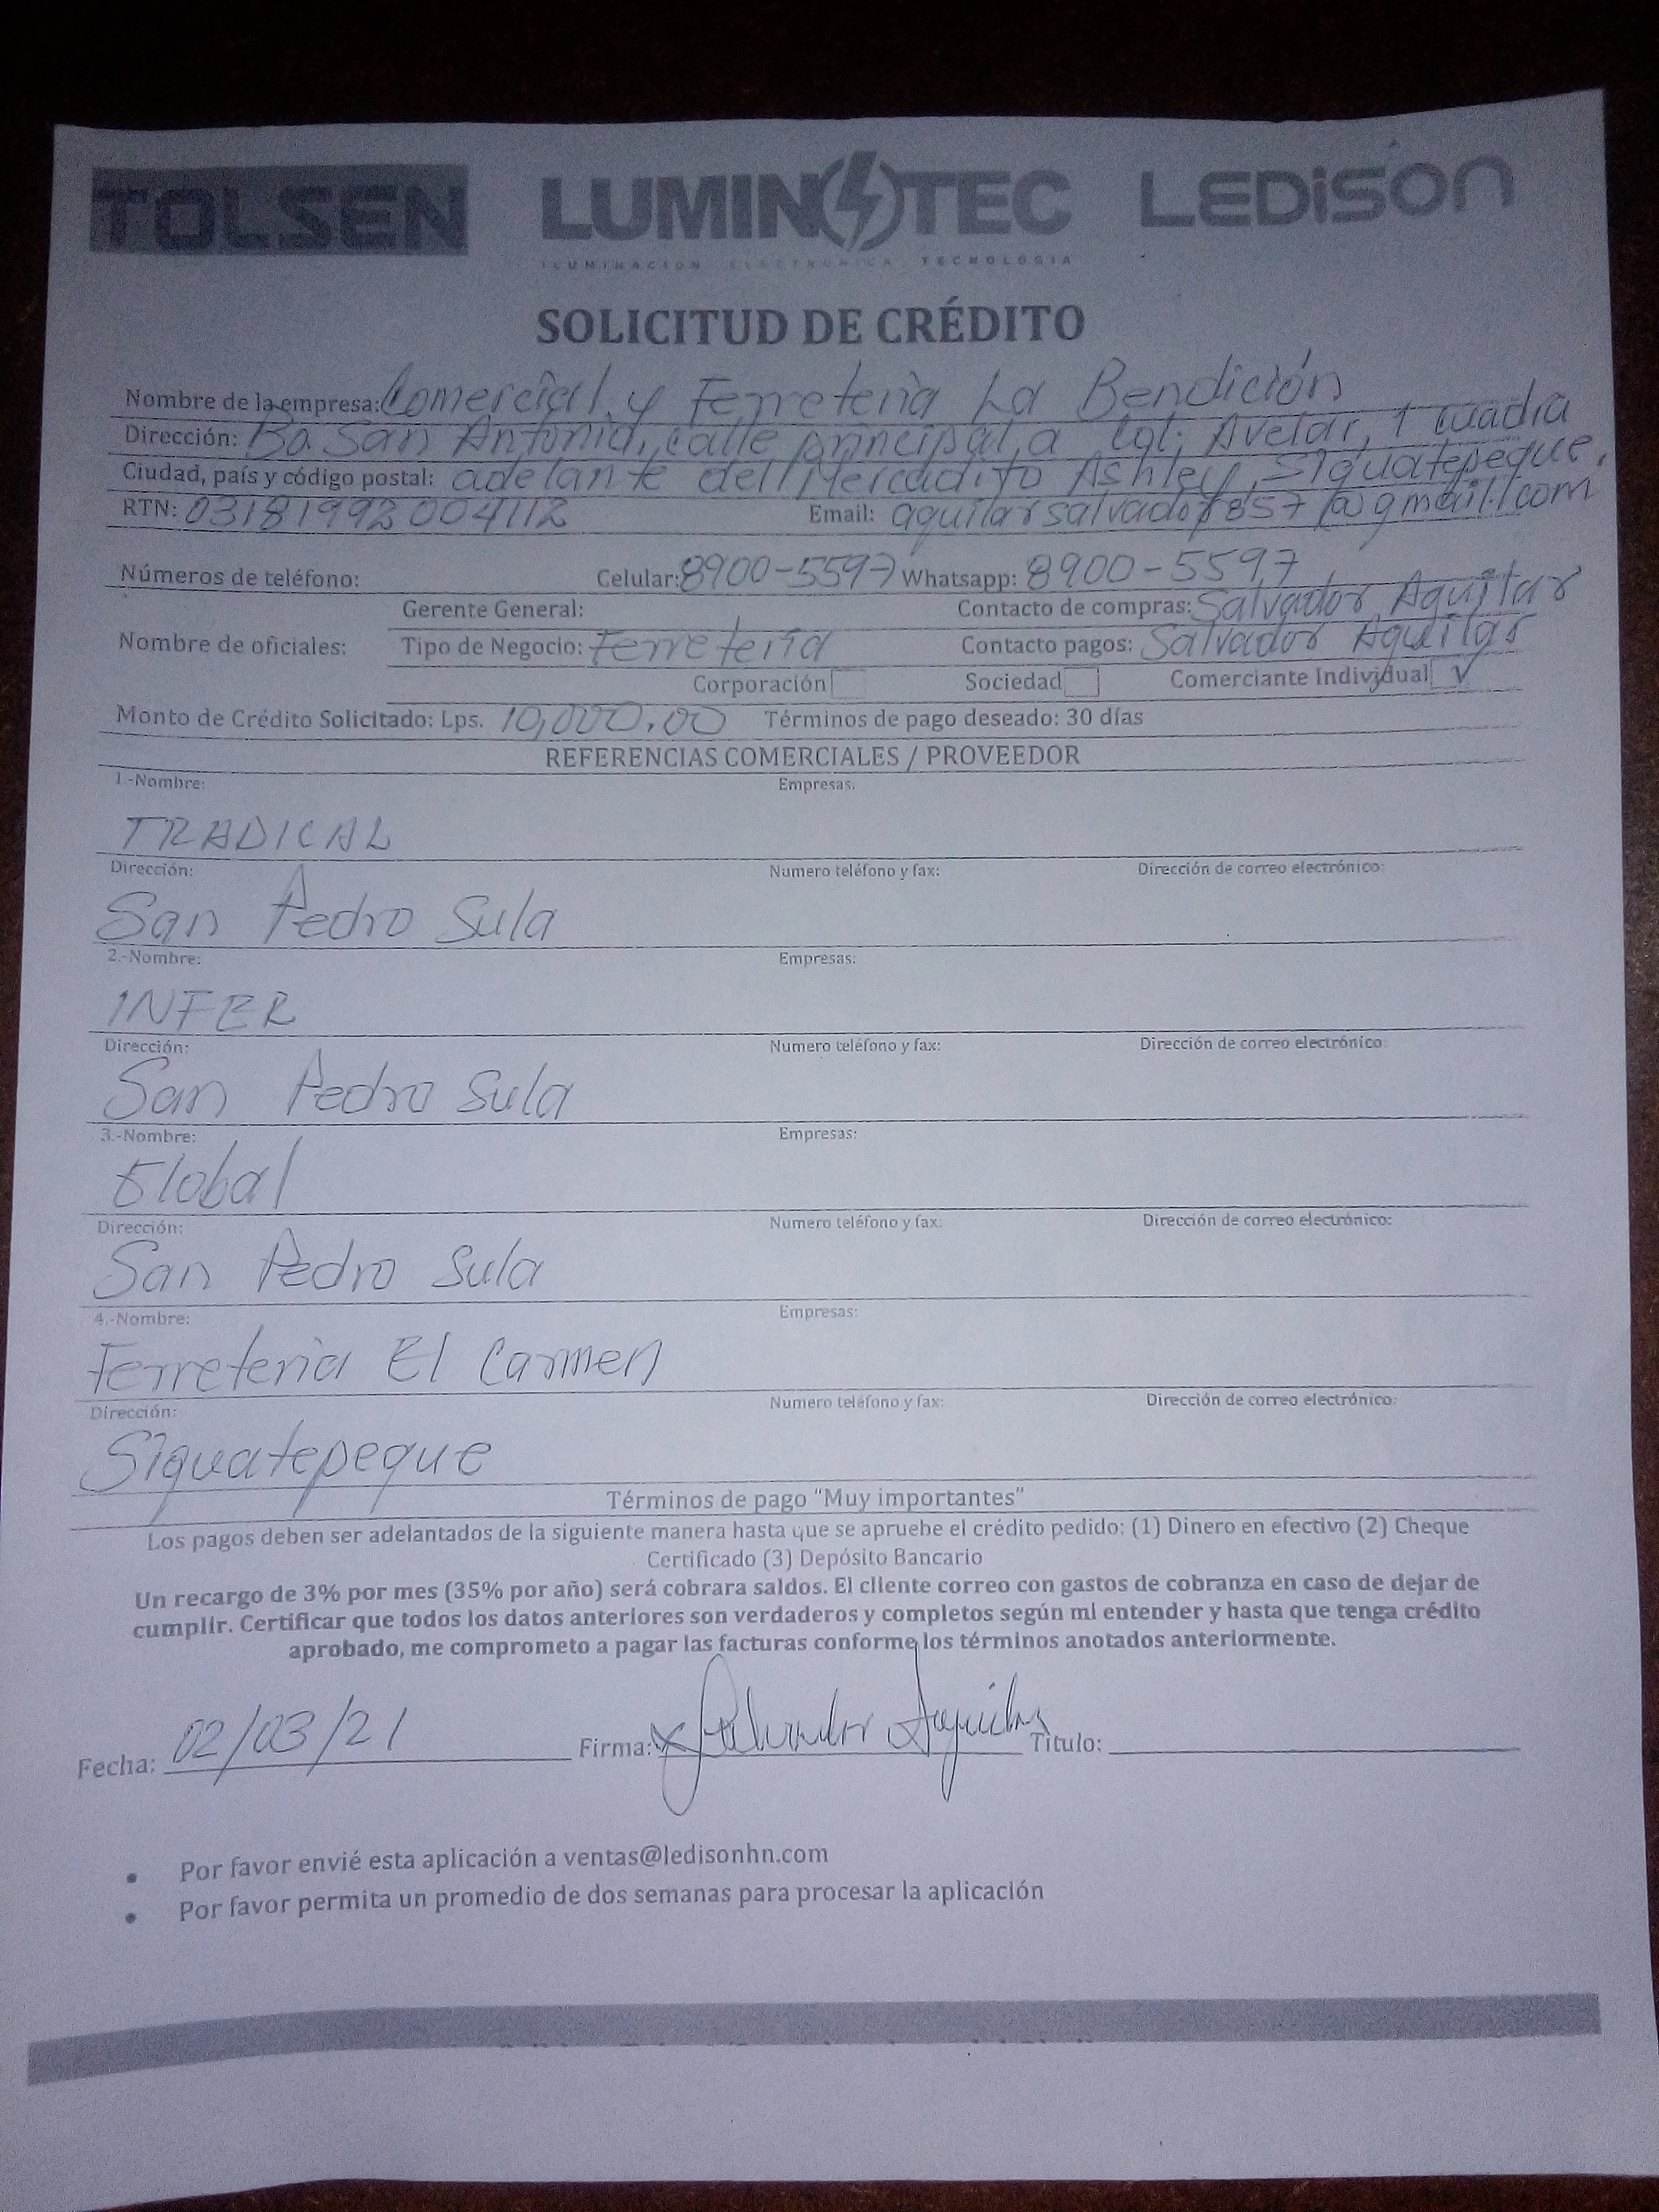 TOLSEN LUMINOTEC LEDISON
ILUMINACION ELECTRONICA TECNOLOGIA
SOLICITUD DE CRÉDITO
Nombre de la empresa: Comercial y Ferreteria La Bendición
Dirección: Bo San Antonio, calle principal, a Col. Avelar, 1 cuadra
Ciudad, país y código postal: adelante del Mercadito Ashley, Siguatepeque.
RTN: 03181992004112 Email: aguilarsalvador857@gmail.com
Números de teléfono: Celular: 8900-5597 Whatsapp: 8900-5597
Gerente General: Contacto de compras: Salvador Aguilar
Nombre de oficiales: Tipo de Negocio: Ferretería Contacto pagos: Salvador Aguilar
Corporación Sociedad Comerciante Individual ✓
Monto de Crédito Solicitado: Lps. 10,000.00 Términos de pago deseado: 30 días
REFERENCIAS COMERCIALES / PROVEEDOR
1.-Nombre: Empresas:
TRADICAL
Dirección: Numero teléfono y fax: Dirección de correo electrónico:
San Pedro Sula
2.-Nombre: Empresas:
INFER
Dirección: Numero teléfono y fax: Dirección de correo electrónico:
San Pedro Sula
3.-Nombre: Empresas:
Global
Dirección: Numero teléfono y fax: Dirección de correo electrónico:
San Pedro Sula
4.-Nombre: Empresas:
Ferreteria El Carmen
Dirección: Numero teléfono y fax: Dirección de correo electrónico:
Siguatepeque
Términos de pago "Muy importantes"
Los pagos deben ser adelantados de la siguiente manera hasta que se apruebe el crédito pedido: (1) Dinero en efectivo (2) Cheque
Certificado (3) Depósito Bancario
Un recargo de 3% por mes (35% por año) será cobrara saldos. El cliente correo con gastos de cobranza en caso de dejar de
cumplir. Certificar que todos los datos anteriores son verdaderos y completos según mi entender y hasta que tenga crédito
aprobado, me comprometo a pagar las facturas conforme los términos anotados anteriormente.
Fecha: 02/03/21 Firma: x Salvador Aguilar Titulo:
• Por favor envié esta aplicación a ventas@ledisonhn.com
• Por favor permita un promedio de dos semanas para procesar la aplicación